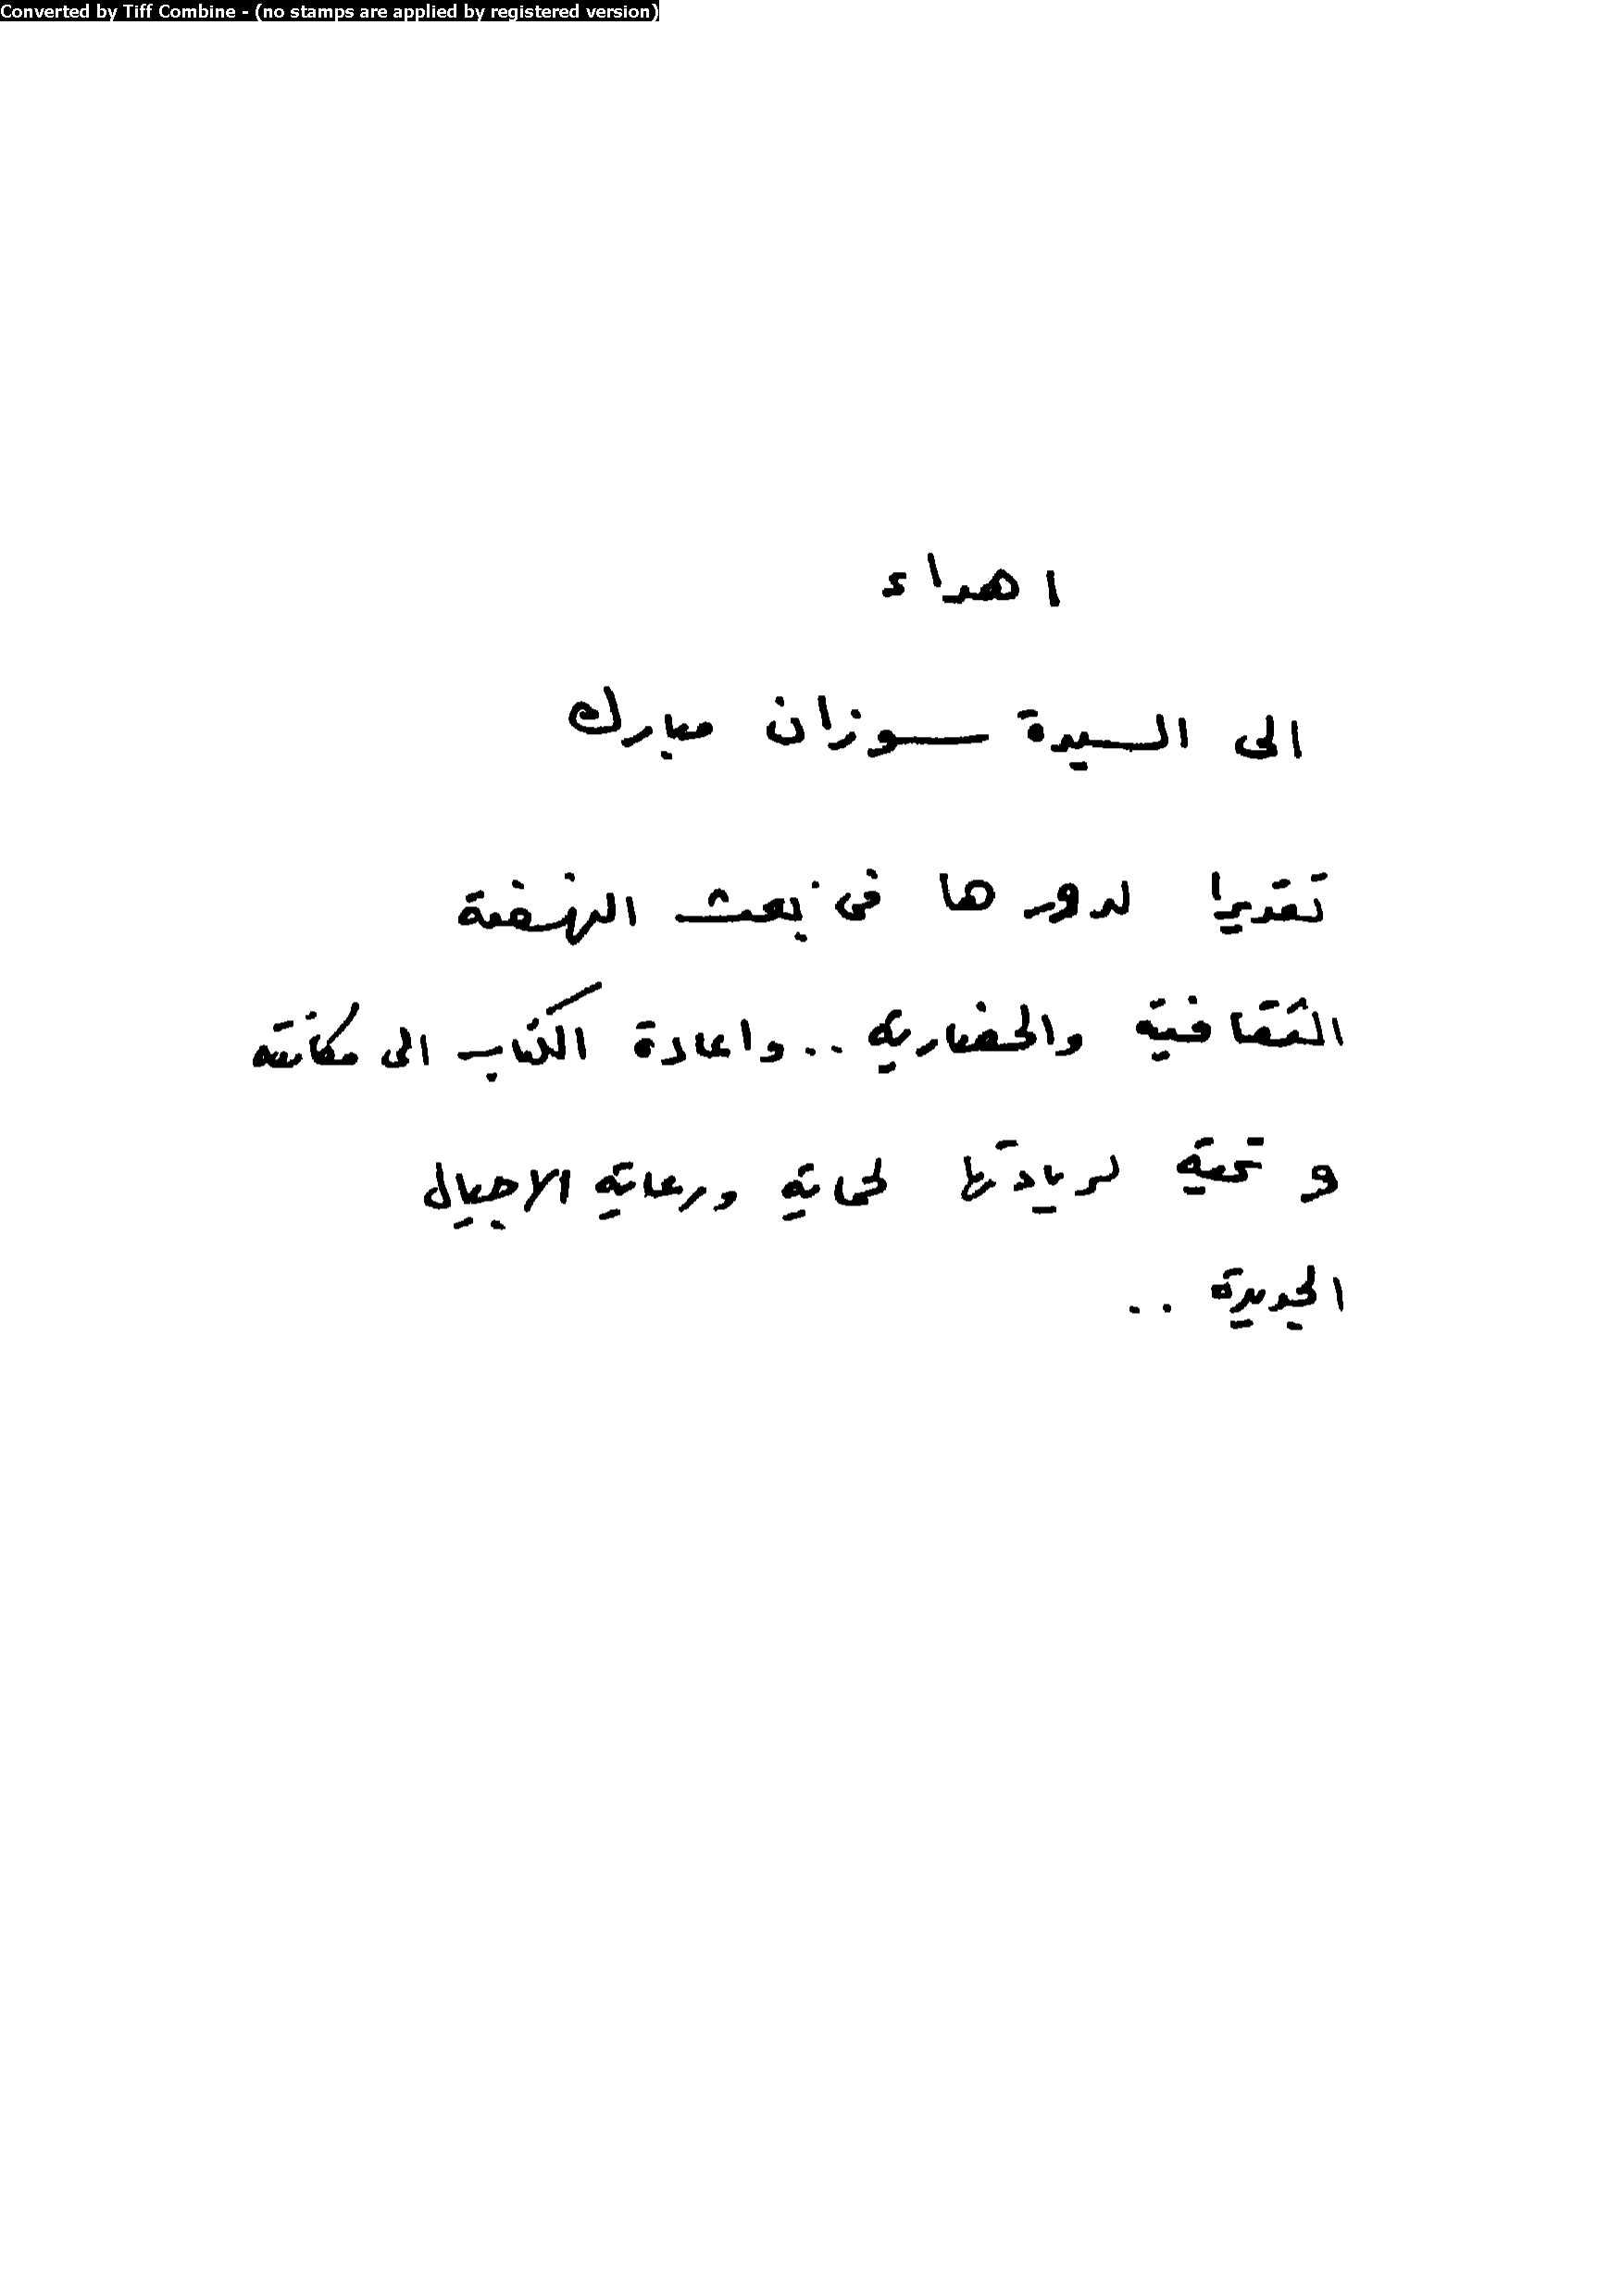 Converted by Tiff Combine - (no stamps are applied by registered version)
اهداء
الى السيدة سوزان مبارك
تقديرا لدورها فى بعث النهضة
الثقافية والحضارية .. واعادة الكتاب الى مكانته
و تحية لريادتها لحماية ورعاية الاجيال
الجديدة ..